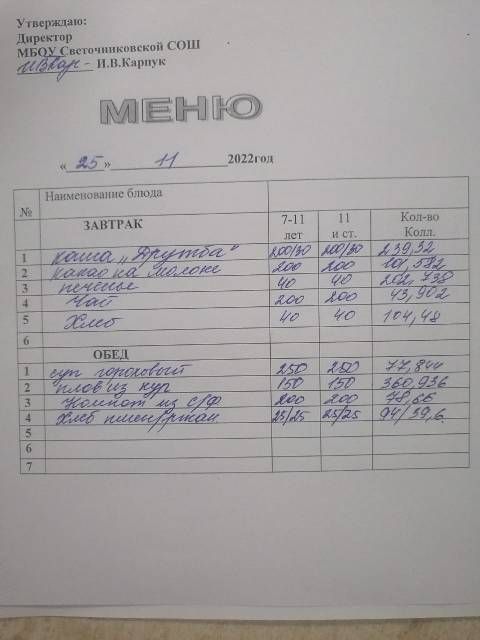 Утверждаю:
Директор
МБОУ Светочниковской СОШ
И.В.Карпук
МЕНЮ
« 25 » 11 2022год
№ Наименование блюда
ЗАВТРАК 7-11 лет 11 и ст. Кол-во Колл.
1 каша „Дружба“ 200/30 200/30 239,32
2 какао на молоке 200 200 101,592
3 печенье 40 40 202,738
4 Чай 200 200 43,902
5 Хлеб 40 40 104,48
6
ОБЕД
1 суп гороховый 250 250 77,844
2 плов из кур 150 150 360,936
3 Компот из с/ф 200 200 78,66
4 Хлеб пшен/ржан 25/25 25/25 94/39,6
5
6
7